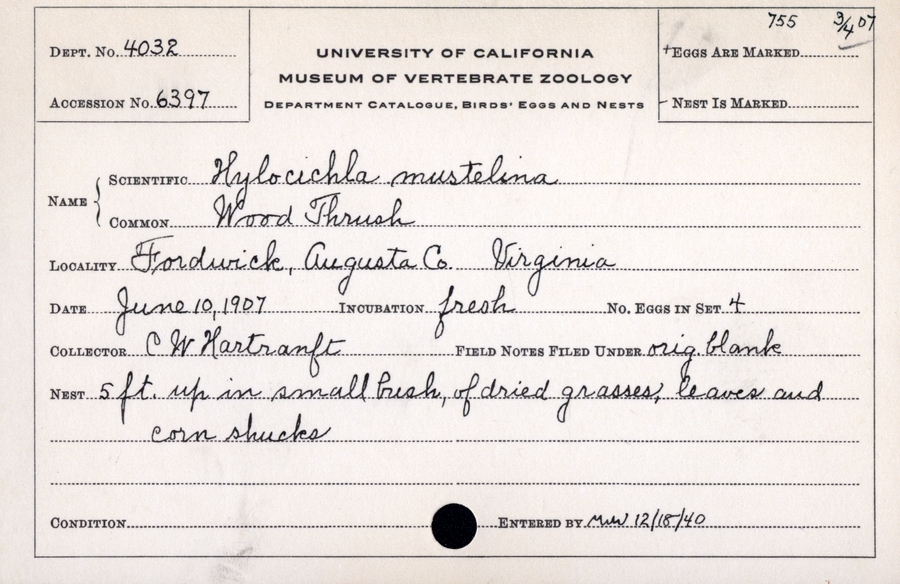 755 3/4 07
DEPT. No. 4032
UNIVERSITY OF CALIFORNIA
+EGGS ARE MARKED
MUSEUM OF VERTEBRATE ZOOLOGY
ACCESSION No. 6397
DEPARTMENT CATALOGUE, BIRDS' EGGS AND NESTS
- NEST IS MARKED
NAME
SCIENTIFIC Hylocichla mustelina
COMMON Wood Thrush
LOCALITY Fordwick, Augusta Co. Virginia
DATE June 10, 1907 INCUBATION fresh No. EGGS IN SET 4
COLLECTOR C W Hartranft FIELD NOTES FILED UNDER orig. blank
NEST 5 ft. up in small bush, of dried grasses, leaves and
corn shucks
CONDITION ENTERED BY 12/18/40